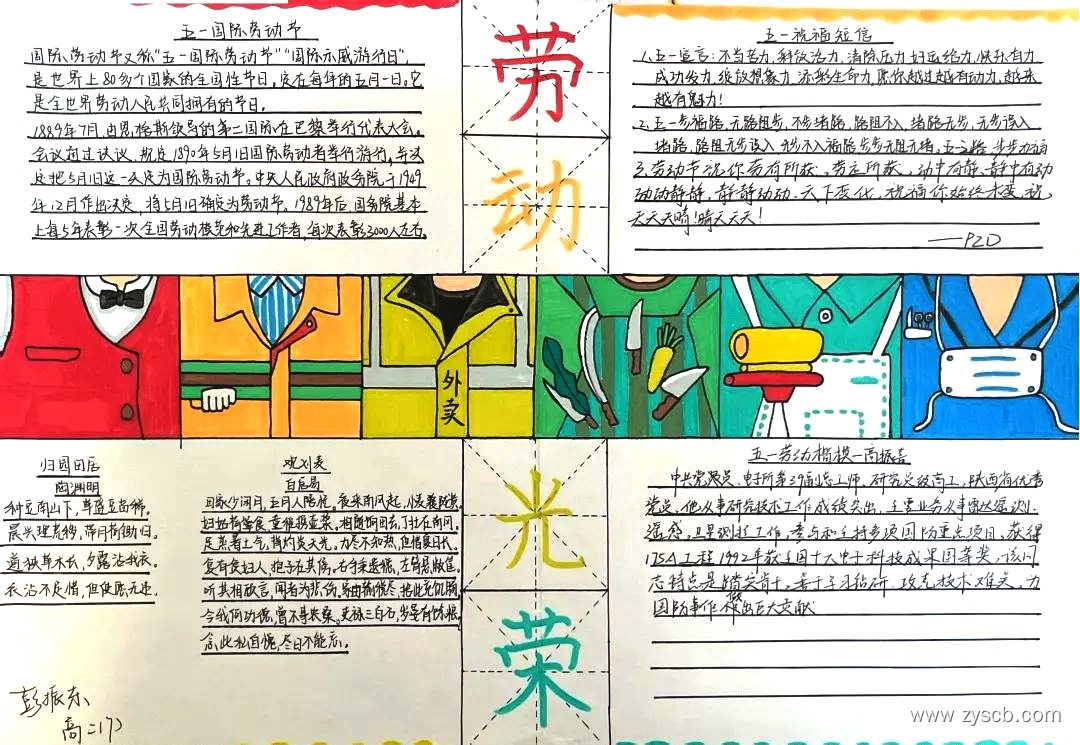 五一国际劳动节
国际劳动节又称"五一国际劳动节""国际示威游行日",
是世界上80多个国家的全国性节日。定在每年的五月一日。它
是全世界劳动人民共同拥有的节日。
1889年7月,由恩格斯领导的第二国际在巴黎举行代表大会。
会议通过决议,规定1890年5月1日国际劳动者举行游行,并决
定把5月1日这一天定为国际劳动节。中央人民政府政务院于1949
年12月作出决定,将5月1日确定为劳动节。1989年后,国务院基本
上每5年表彰一次全国劳动模范和先进工作者,每次表彰3000人左右。
劳
动
五一祝福短信
1、五一宣言:不当苦力,释放活力,消除压力
成功发力,绽放想象力,添彩生命力,愿你越过越有动力,越来
越有魅力!
2、五一步福路,无路阻步,不步堵路,路阻不入,堵路无步,无步误入
3、劳动节祝你劳有所获,劳逸所获,动中有静,静中有动
动动静静,静静动动,天下变化,祝福你始终不变,祝
天天天晴!晴天天天!
——PZD
外卖
归园田居
陶渊明
种豆南山下,草盛豆苗稀。
晨兴理荒秽,带月荷锄归。
道狭草木长,夕露沾我衣。
衣沾不足惜,但使愿无违。
观刈麦
白居易
田家少闲月,五月人倍忙。夜来南风起,小麦覆陇黄。
妇姑荷箪食,童稚携壶浆。相随饷田去,丁壮在南冈。
足蒸暑土气,背灼炎天光。力尽不知热,但惜夏日长。
复有贫妇人,抱子在其傍。右手秉遗穗,左臂悬敝筐。
听其相顾言,闻者为悲伤。家田输税尽,拾此充饥肠。
今我何功德,曾不事农桑。吏禄三百石,岁晏有余粮。
念此私自愧,尽日不能忘。
光
荣
五一劳动楷模—高振喜
中共党员、电子所第39所总工师,研究员级高工,陕西省优秀
党员,他从事研究技术工作成绩突出,主要业务从事雷达遥测、
遥感、卫星测控工作,参与和主持多项国防重点项目,获得
175A工程1992年获全国十大电子科技成果国等奖,该同
志特点是踏实肯干,善于学习钻研,攻克技术难关,为
国防事作做出巨大贡献
彭振东
高二(17)
www.zyscb.com